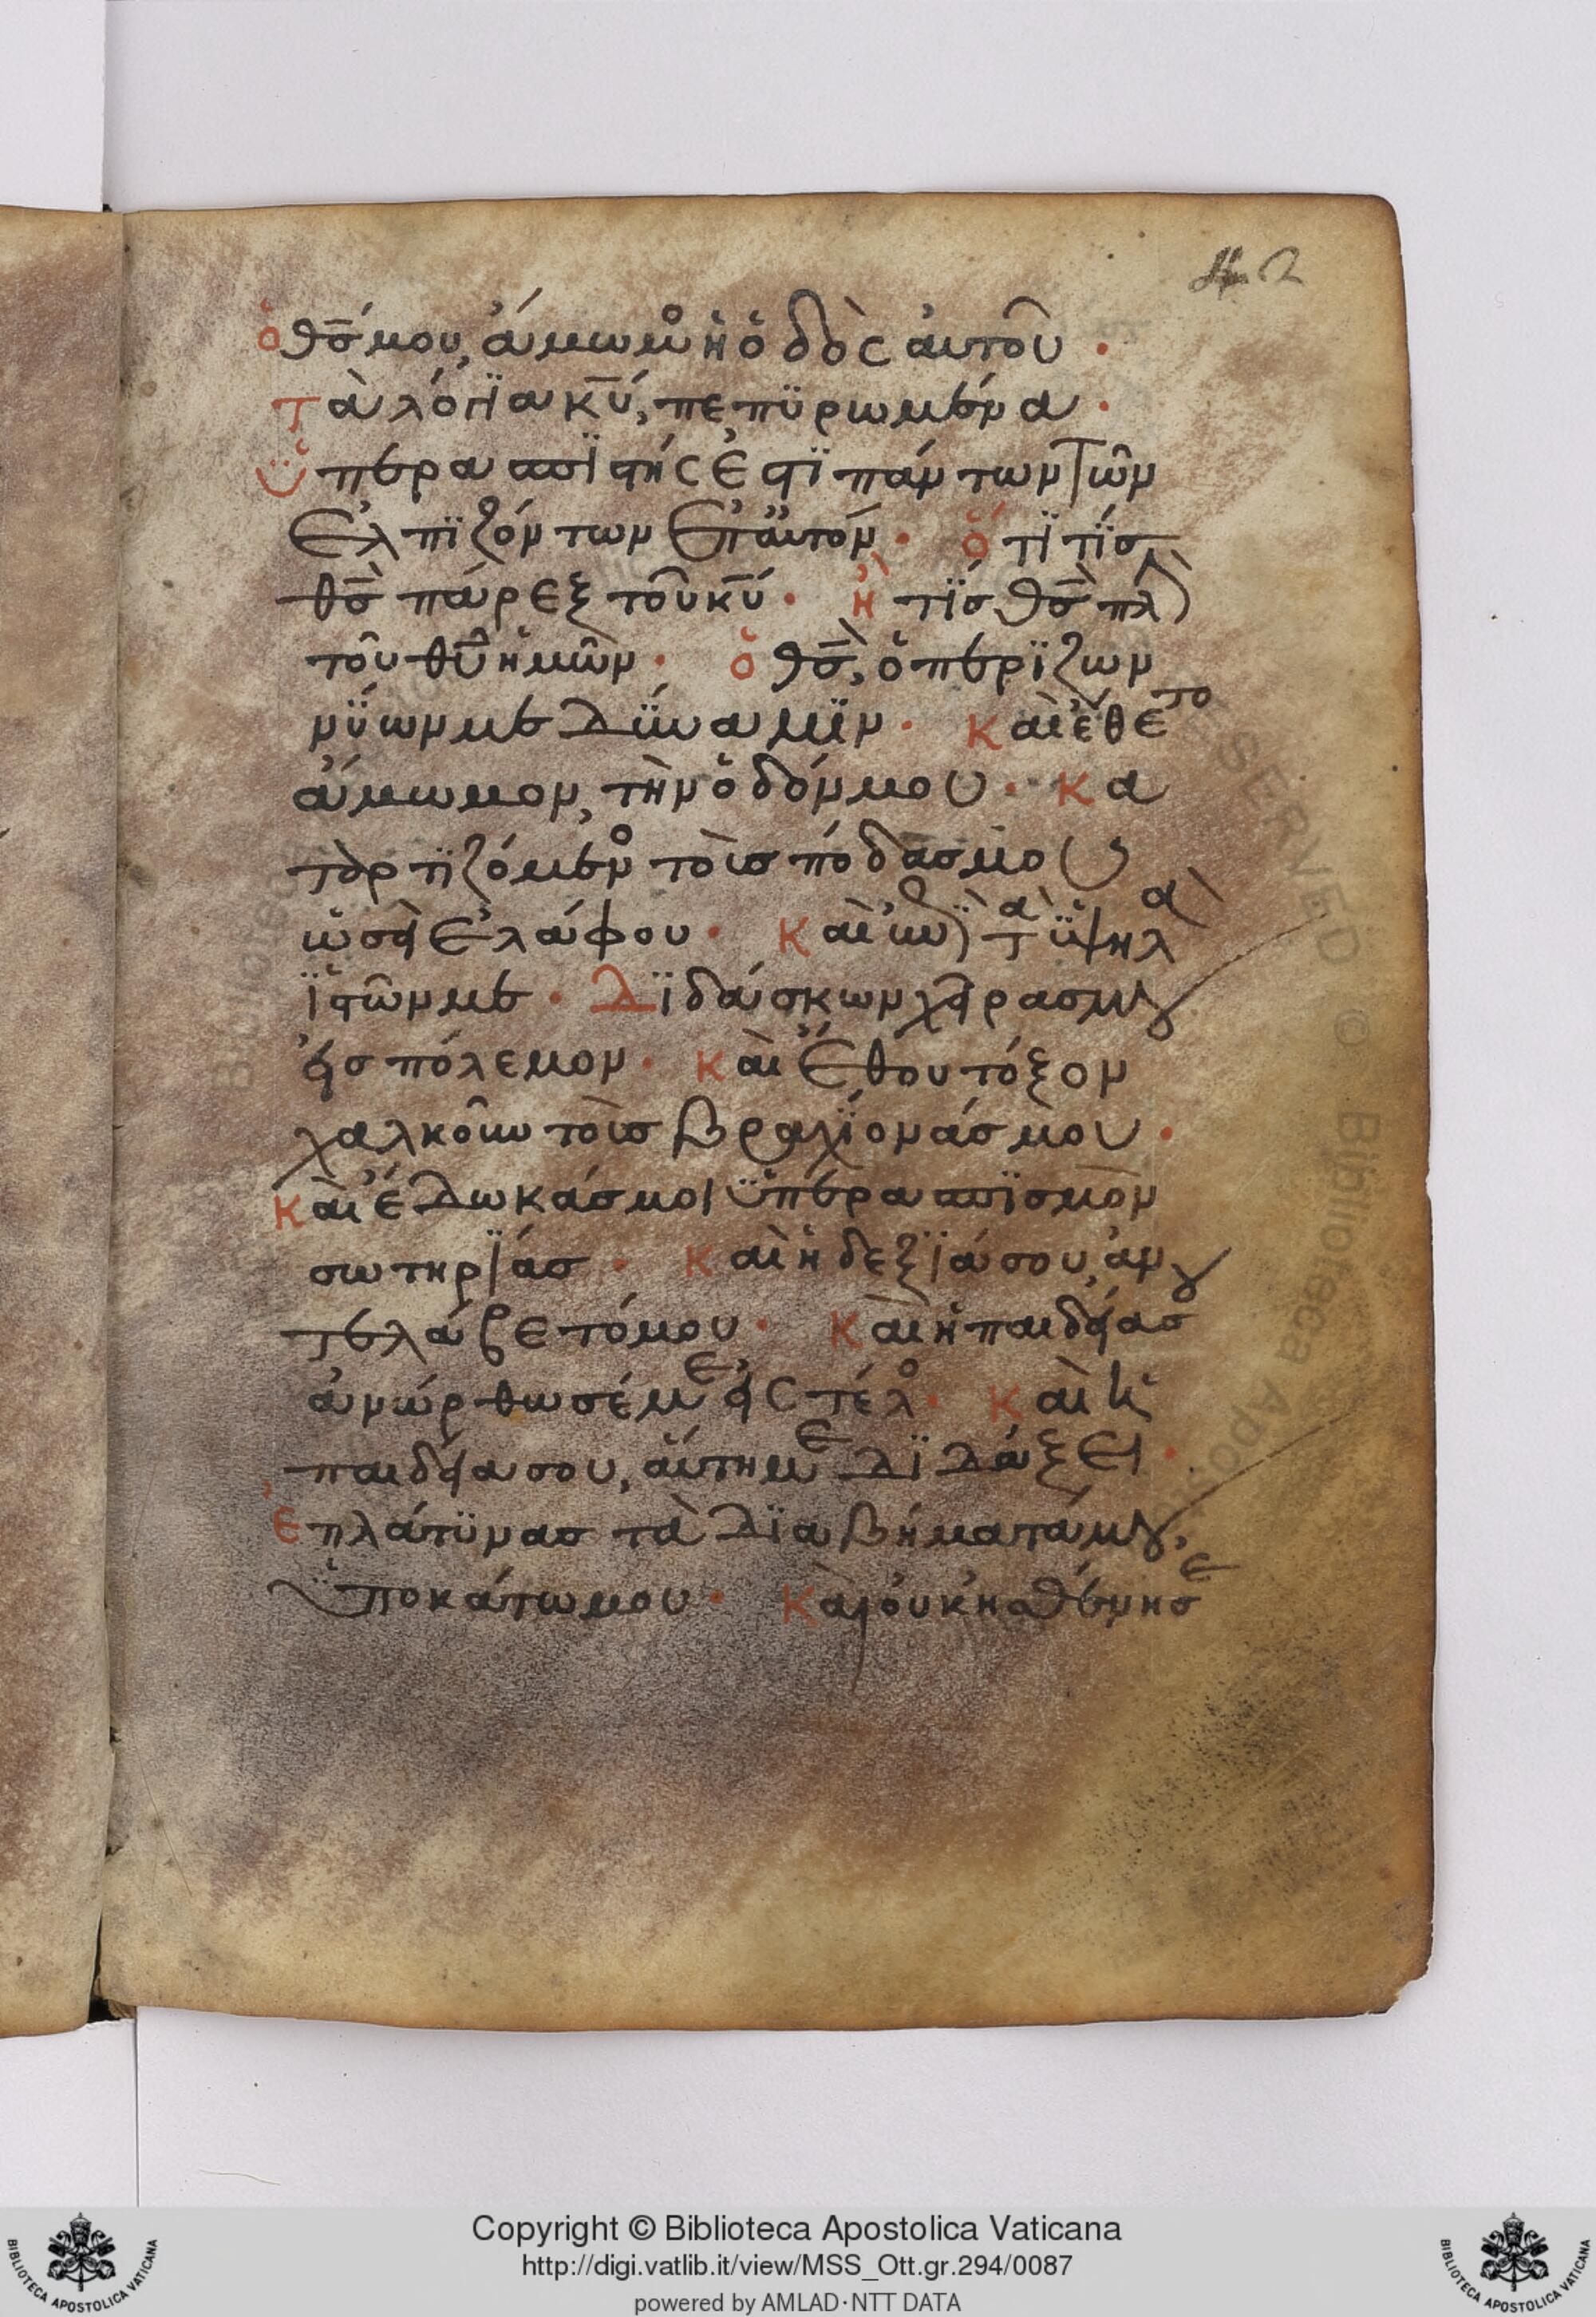 42
ὁ θ̅ς̅ μου, ἄμωμος ἡ ὁδὸς ἀυτοῦ ·
Τὰ λόγϊα κ̅υ̅, πεπϋρωμένα ·
Ϋπερασπϊστής ἐστϊ πάντων τῶν
ἐλπϊζόντων ἐπ ἀυτόν · ὅτϊ τίς
θ̅ς̅ πάρεξ τοῦ κ̅υ̅ · ἢ τίς θ̅ς̅ πλὴν
τοῦ θ̅υ̅ ἡμῶν · ὁ θ̅ς̅, ὁ περϊζων
νύων με δϋναμϊν · Καὶ ἔθετο
ἄμωμον, τὴν ὁδόν μου · Κα
ταρτϊζόμενος τοὺς πόδας μου
ὡσεὶ ἐλάφου · Καὶ ἐπὶ τὰ ὑψηλὰ
ϊστῶν με · Δϊδάσκων χεῖρας μου
εἰς πόλεμον · Καὶ ἔθου τόξον
χαλκοῦν τοὺς βραχϊονάς μου ·
Καὶ ἔδωκάς μοι ϋπερασπϊσμὸν
σωτηρϊάς · Καὶ ἡ δεξϊά σου, ἀν
τελάβετό μου · Καὶ ἡ παιδεία σου
ἀνώρθωσέ με εἰς τέλος · Καὶ ἡ
παιδεία σου, ἀύτη με δϊδάξει ·
Ἐπλάτϋνας τὰ δϊαβήματά μου,
ϋποκάτω μου · Καὶ ὀυκ ἠσθένησε
Copyright © Biblioteca Apostolica Vaticana
http://digi.vatlib.it/view/MSS_Ott.gr.294/0087
powered by AMLAD·NTT DATA
BIBLIOTECA APOSTOLICA VATICANA
BIBLIOTECA APOSTOLICA VATICANA